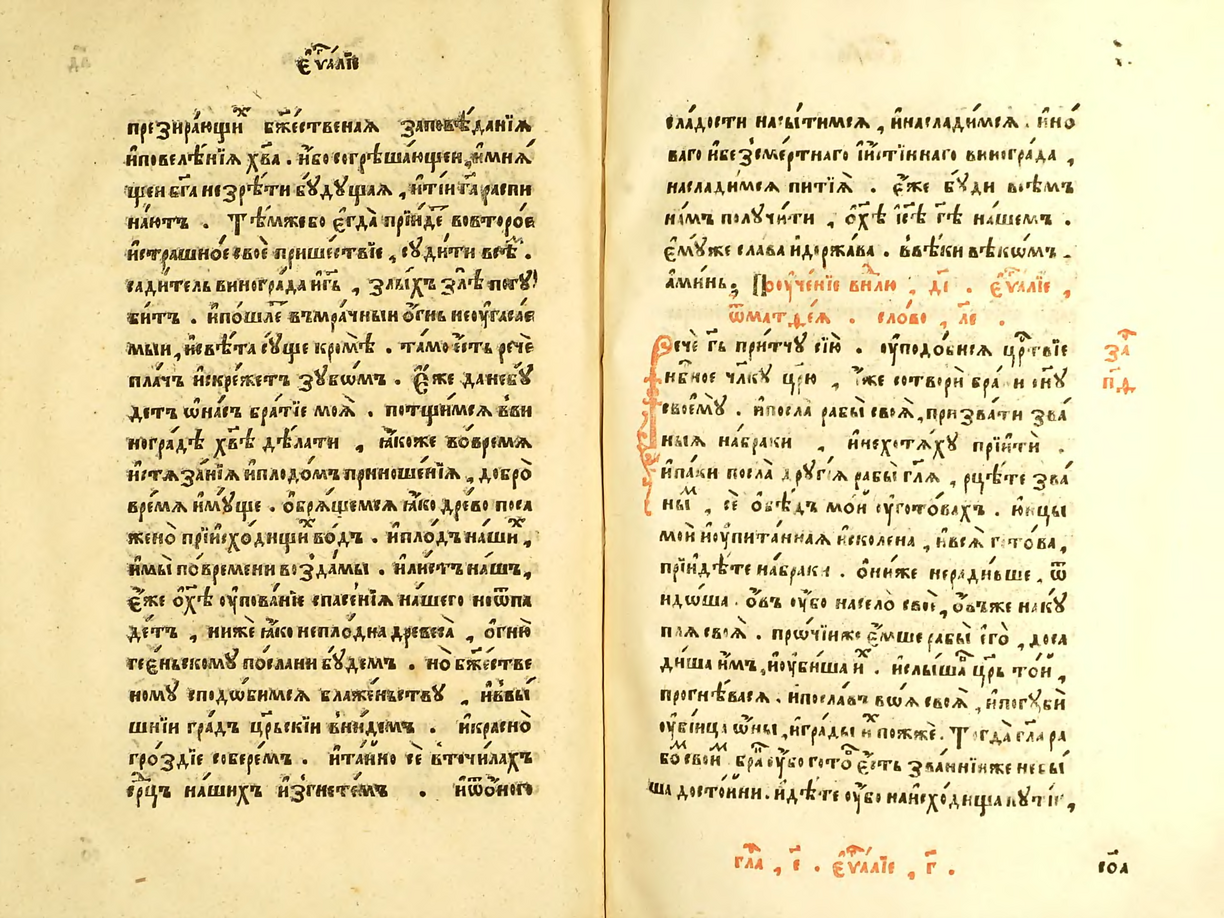 є҆ѵⷢ҇алїе
презира́ющиⷯ бж҃е́ственаѧ заповѣ́данїѧ
и҆повелѣ́нїѧ хв҃а . и҆бо согрѣша́ющеи , и҆мнѧ́
щеи бг҃а не зрѣ́ти бꙋ́дꙋщаѧ , и҆тїи гⷭ҇а распи
на́ютъ . Тѣ́мже бо є҆гда̀ прїи́деⷮ вовторо́е
и҆страшно́е своѐ прише́ствїе , сꙋди́ти всѣⷨ .
сади́тель винегра́да и҆гь , злы́хъ злѣ̀ погꙋ
би́тъ . и҆по́шлеⷮ въмра́чныи о҆́гнь неоу҆гаса́е
мыи , и҆свѣ́та сꙋ́ще кромѣ̀ . та́мо є҆́сть речѐ
пла́чь и҆скре́жетъ зꙋбѡ́мъ . Є҆́же да небꙋ́
детъ ѡ҆на́съ бра́тїе моѧ̀ . потщи́мсѧ вви
ногра́дѣ хв҃ѣ дѣ́лати , ꙗ҆́коже во́времѧ
и҆стѧза́нїѧ и҆плодо́мъ приноше́нїѧ , добро̀
вре́мѧ и҆мꙋ́ще . ѡ҆брѧ́щемсѧ ꙗ҆́ко дре́во поса
жено̀ прїи҆схо́дищиⷯ во́дъ . и҆пло́дъ на́шиⷯ ,
и҆мы̀ по́времени возда́мы . и҆ли́стъ на́шъ ,
є҆́же ѡ҆хⷭ҇ѣ оу҆пова́нїе спасе́нїѧ на́шего неѿпа
де́тъ , ниже ꙗ҆́ко непло́дна древеса̀ , о҆гню̀
гее́ньскомꙋ по́слани бꙋ́демъ . но̀ бж҃е́стве
номꙋ сподо́бимсѧ блаже́ньствꙋ , и҆ввы́
шнїи гра́дъ цр҃ьскїи вни́демъ . и҆кра́сно
гро́здїе собере́мъ . и҆та́йно сѐ вточи́лахъ
срⷣцъ на́шихъ и҆згнете́мъ . и҆ѿо́ного
сла́дости насы́тимсѧ , и҆насла́димсѧ . и҆но́
ваго и҆безсме́ртнаго и҆́стїннаго винегра́да ,
насла́димсѧ питїѧ̀ . є҆́же бꙋ́ди всѣ́мъ
на́мъ полꙋчи́ти , ѡ҆хⷭ҇ѣ і҆с҃ѣ гⷭ҇ѣ на́шемъ .
є҆мꙋ́же сла́ва и҆держа́ва . ввѣ́ки вѣкѡ́мъ .
а҆ми́нь ; Поꙋче́нїе внⷣлю , д҃і . є҆ѵⷢ҇алїе ,
ѿматѳе́ѧ . сло́во , л҃е .
Речѐ гⷭ҇ь при́тчꙋ сїю̀ . оу҆подо́бисѧ црⷭ҇твїе
нбⷭ҇ное чл҃кꙋ цр҃ю , и҆́же сотворѝ бра́ки сн҃ꙋ
своемꙋ̀ . и҆посла̀ рабы̀ своѧ̀ , призва́ти зва́
ныѧ на́браки , и҆нехотѧ́хꙋ прїитѝ .
и҆па́ки посла̀ дрꙋгі́ѧ рабы̀ гл҃ѧ , рцѣ́те зва́
ныⷨ , сѐ о҆бѣ́дъ мо́и оу҆гото́вахъ . ю҆нцы̀
мои҆ и҆оу҆пита́ннаѧ и҆сколена , и҆всѧ̀ гото́ва ,
прїидѣ́те на́браки . ѻ҆ни́же неради́вше , ѿ
идо́ша . о҆́въ оу҆́бо насело̀ своѐ , о҆́въже накꙋ́
плѧ своѧ̀ . про́чїиже є҆́мше рабы̀ е҆го̀ , доса
ди́ша и҆́мъ , и҆оу҆би́ша иⷯ . и҆слы́шавъ цр҃ь то́и ,
прогнѣ́васѧ . и҆посла́въ во́ѧ своѧ̀ , и҆погꙋбѝ
оу҆бі́ица ѡ҆́ны , и҆гра́ды иⷯ пожжѐ . Тогда̀ гл҃а ра
бо́мъ свои́мъ бра́къ оу҆́бо гото́въ є҆́сть зва́ннїиже небы́
ша досто́йни . и҆дѣ́те оу҆́бо наи҆схо́дища пꙋ́тїѧ ,
заⷣ
п҃д
гла⷏ , є҃ . є҆ѵⷢ҇алїе , г҃ .
со҃а